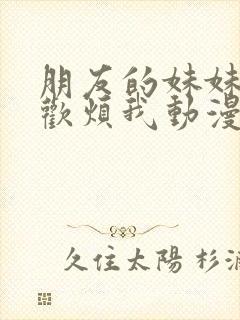 朋友的妹妹
歡煩我動漫
久住太陽 杉浦